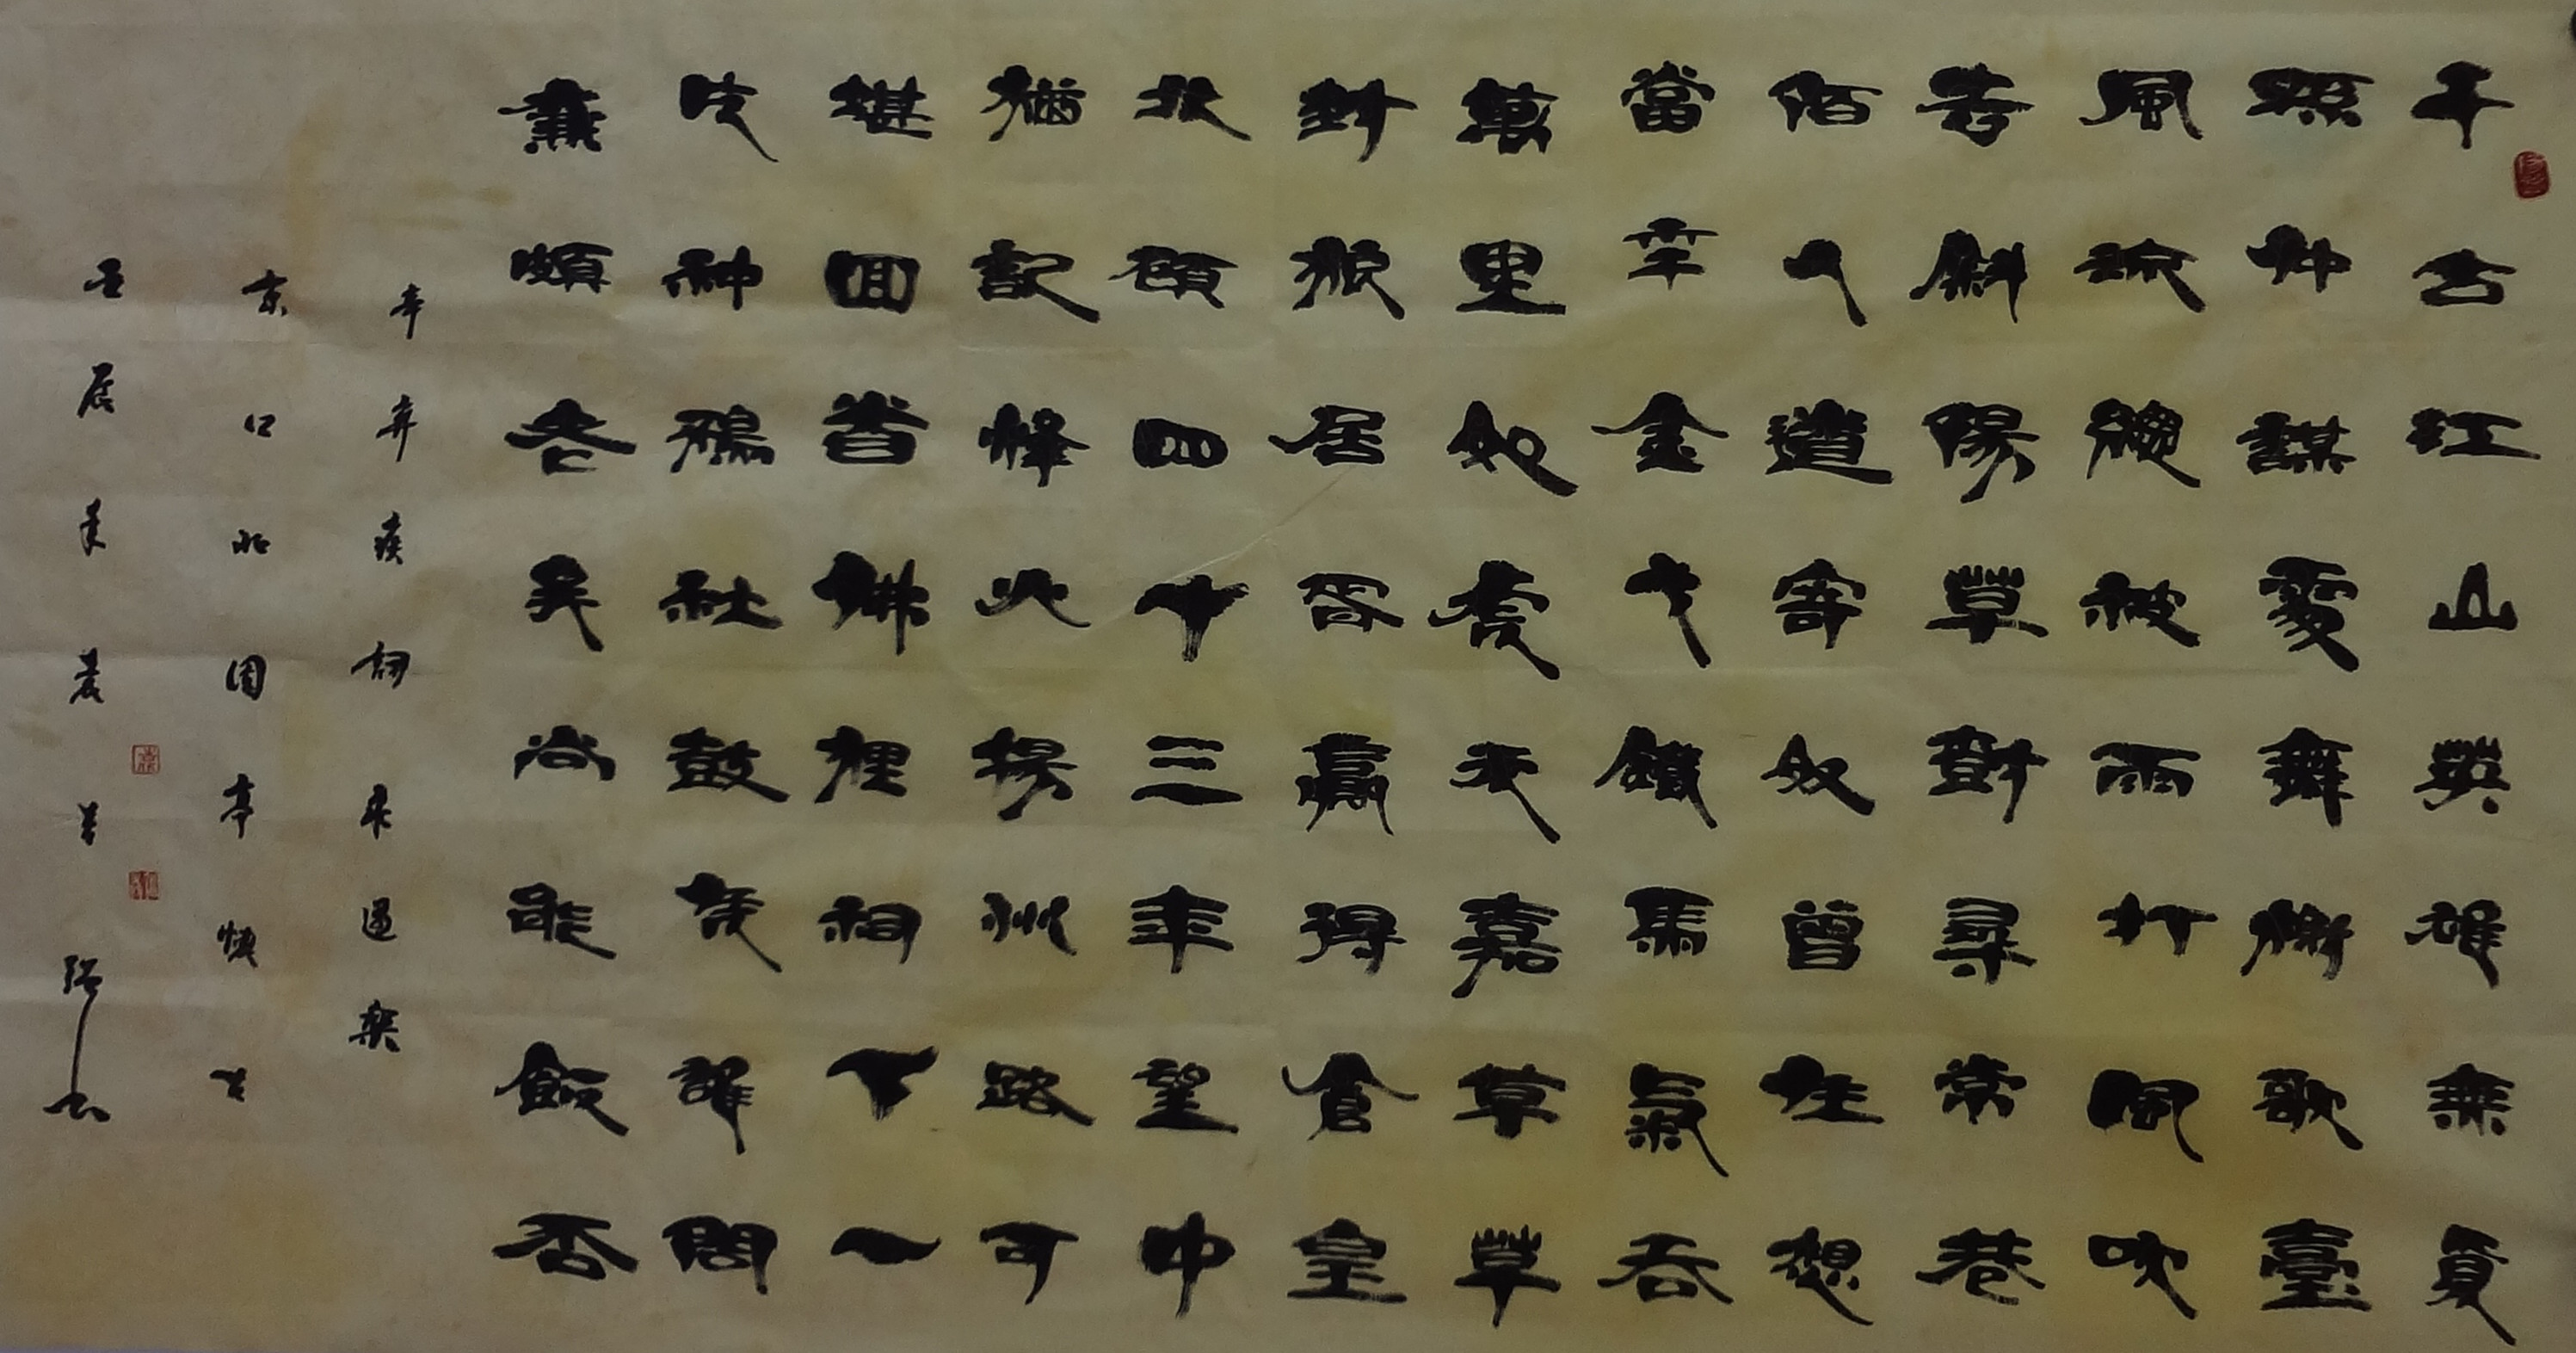 千古江山英雄無覓
孫仲謀處舞榭歌臺
風流總被雨打風吹
去斜陽草樹尋常巷
陌人道寄奴曾住想
當年金戈鐵馬氣吞
萬里如虎元嘉草草
封狼居胥贏得倉皇
北顧四十三年望中
猶記烽火揚州路可
堪回首佛狸祠下一
片神鴉社鼓憑誰問
廉頗老矣尚能飯否
辛弃疾詞永遇樂
京口北固亭懷古
辰年